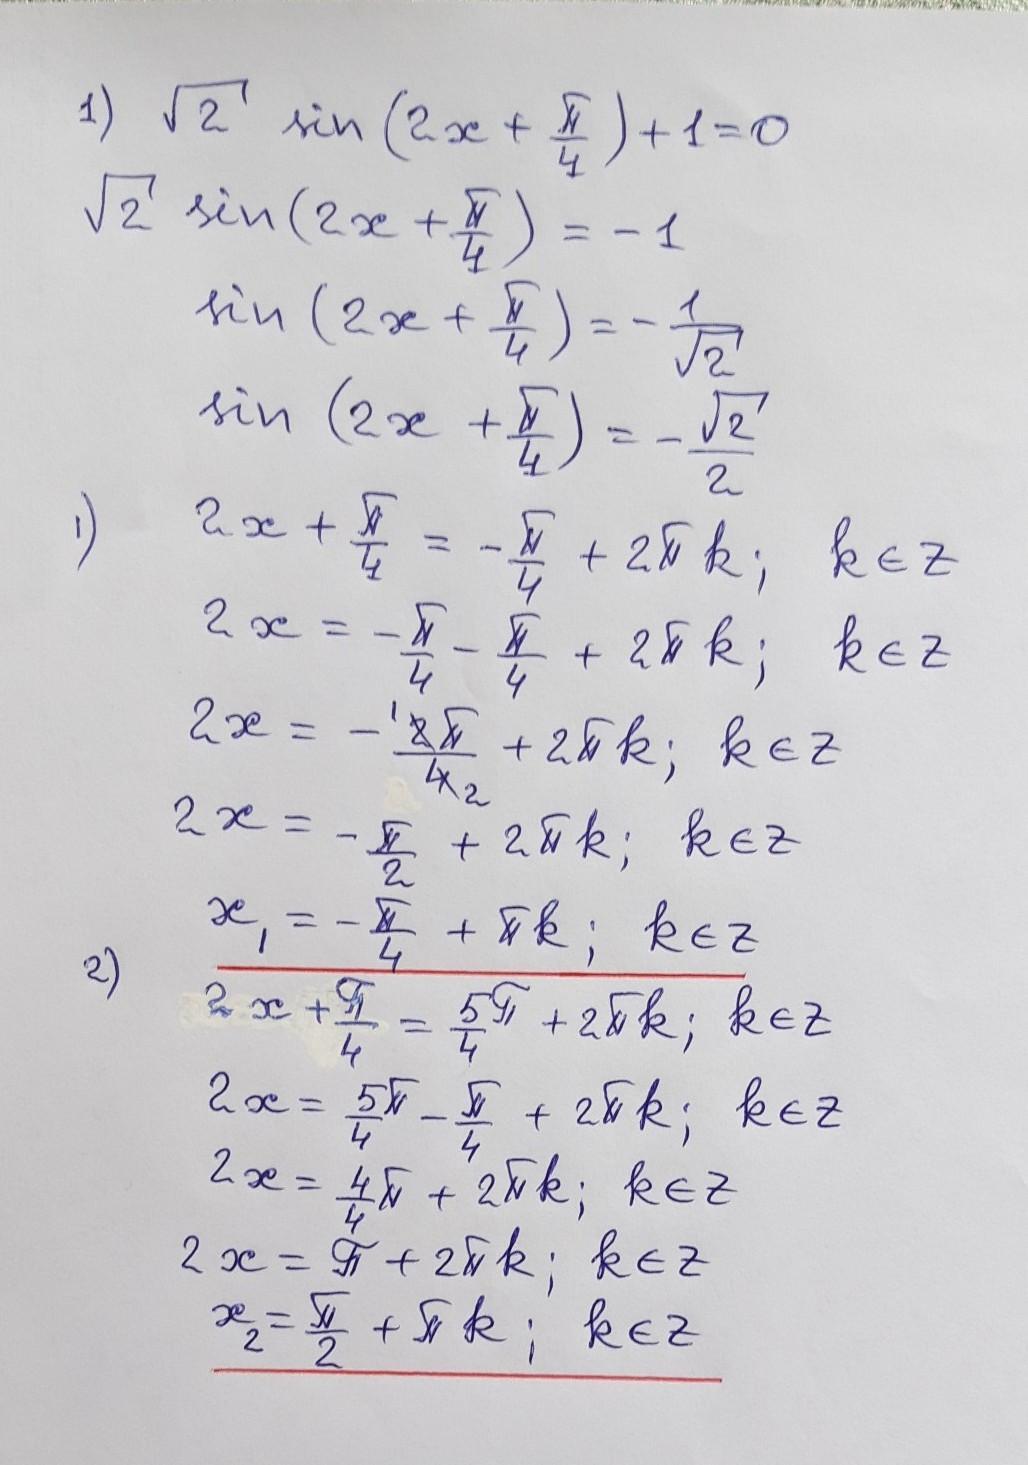 1) √2 sin(2x + π/4) + 1 = 0
√2 sin(2x + π/4) = -1
sin(2x + π/4) = -1/√2
sin(2x + π/4) = -√2/2
1) 2x + π/4 = -π/4 + 2πk; k∈z
2x = -π/4 - π/4 + 2πk; k∈z
2x = -¹2π/4₂ + 2πk; k∈z
2x = -π/2 + 2πk; k∈z
x₁ = -π/4 + πk; k∈z
2) 2x + π/4 = 5/4π + 2πk; k∈z
2x = 5/4π - π/4 + 2πk; k∈z
2x = 4/4π + 2πk; k∈z
2x = π + 2πk; k∈z
x₂ = π/2 + πk; k∈z